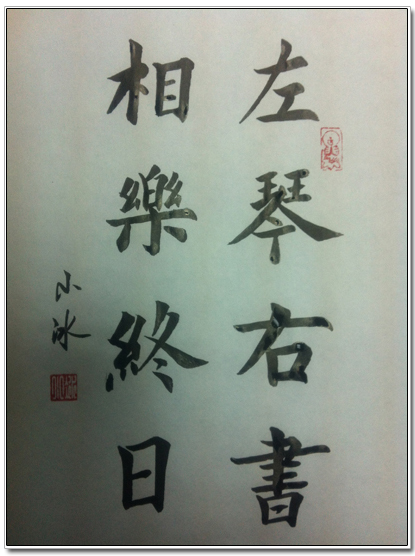 左琴右書
相樂終日
小冰